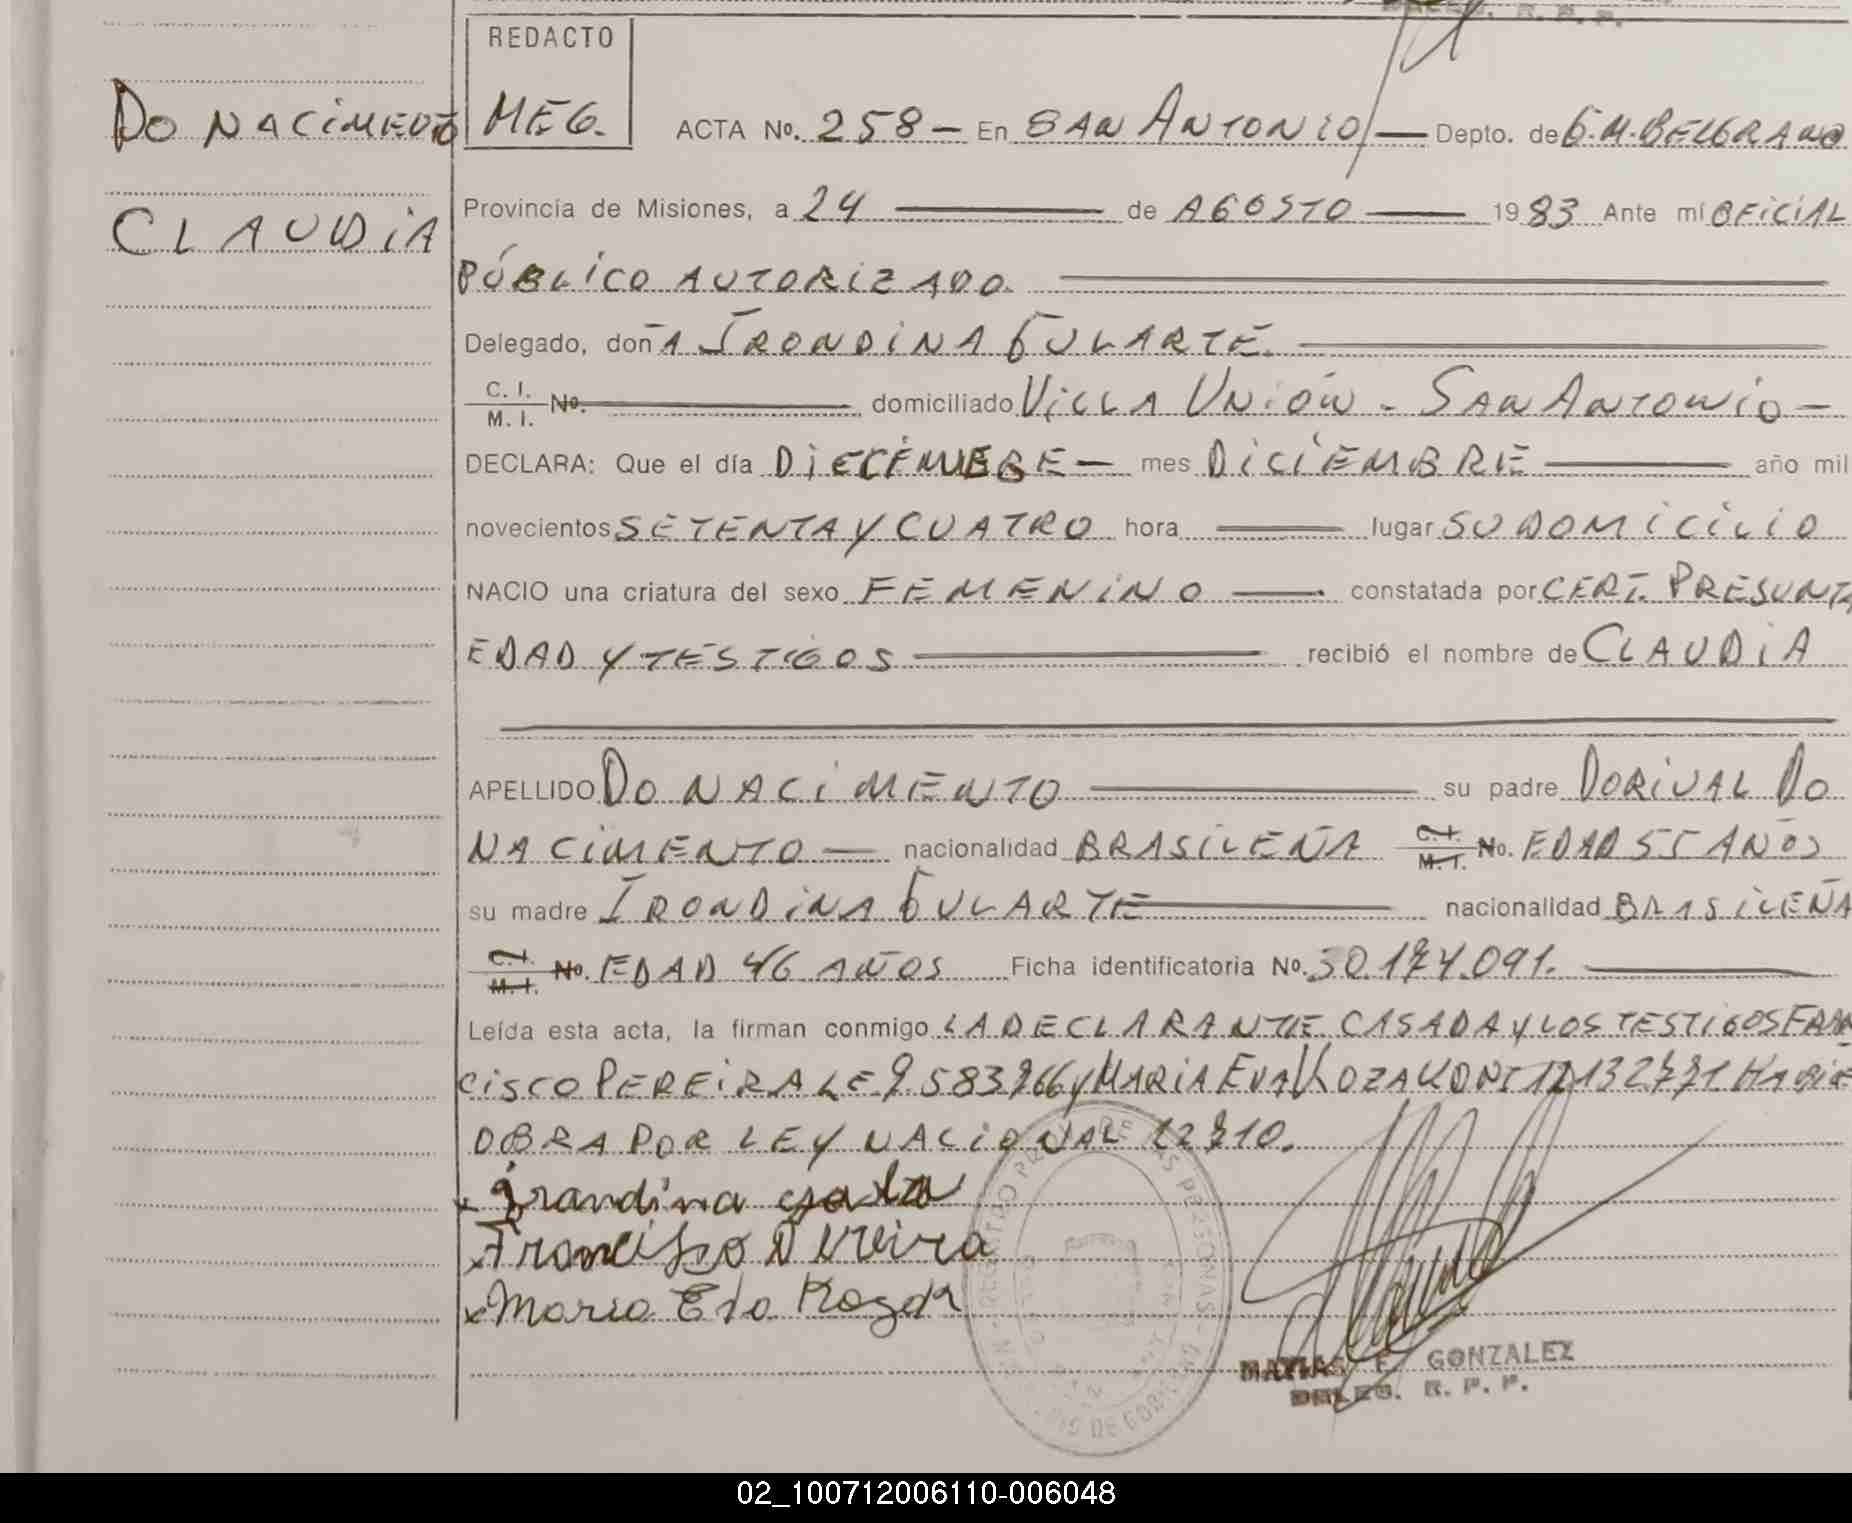 DELEG. R. P. P.
REDACTO
MEG.
DO NACIMENTO
CLAUDIA
ACTA No. 258 - En SAN ANTONIO — Depto. de G.M. BELGRANO
Provincia de Misiones, a 24 — de AGOSTO — 1983 Ante mí OFICIAL
PÚBLICO AUTORIZADO.
Delegado, doñA IRONDINA GULARTE.
C. I.
M. I. No. — domiciliado VILLA UNIÓN - SAN ANTONIO -
DECLARA: Que el día — mes DICIEMBRE — año mil
novecientos SETENTA Y CUATRO hora — lugar SU DOMICILIO
NACIO una criatura del sexo FEMENINO — constatada por CERT. PRESUNTA
EDAD Y TESTIGOS — recibió el nombre de CLAUDIA
APELLIDO DO NACIMENTO — su padre DORIVAL DO
NACIMENTO — nacionalidad BRASILEÑA C. I. M. I. No. EDAD 55 AÑOS
su madre IRONDINA GULARTE — nacionalidad BRASILEÑA
C. I. M. I. No. EDAD 46 AÑOS Ficha identificatoria No. 30.174.091.
Leída esta acta, la firman conmigo LA DECLARANTE CASADA Y LOS TESTIGOS FRAN
CISCO PEREIRA LE 7.583766 y MARIA EVA KOZA 12132771
OBRA POR LEY NACIONAL 22710.
x Irandina
x Francisco
x Maria Eva Kozak
REGISTRO PROV. DE LAS PERSONAS
MATIAS F. GONZALEZ
DELEG. R. P. P.
02_100712006110-006048